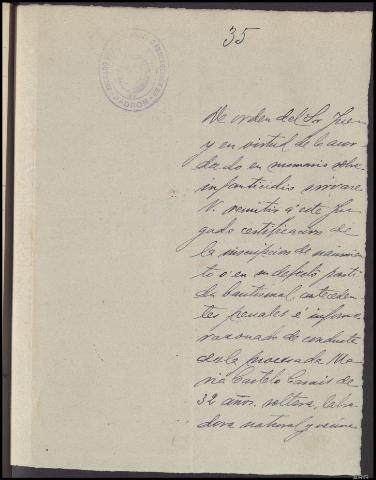 35
JUZGADO DE
PADRON
De orden del Sor Juez
y en virtud de lo acor
dado en sumario sobre
infanticidio sirvase
V. remitir á este Juz
gado certificacion de
la inscripcion de nacimien
to o en su defecto parti
da bautismal, anteceden
tes penales é informe
razonado de conducta
de la procesada Ma
ria Castelo de
32 años, soltera, labra
dora natural y vecina